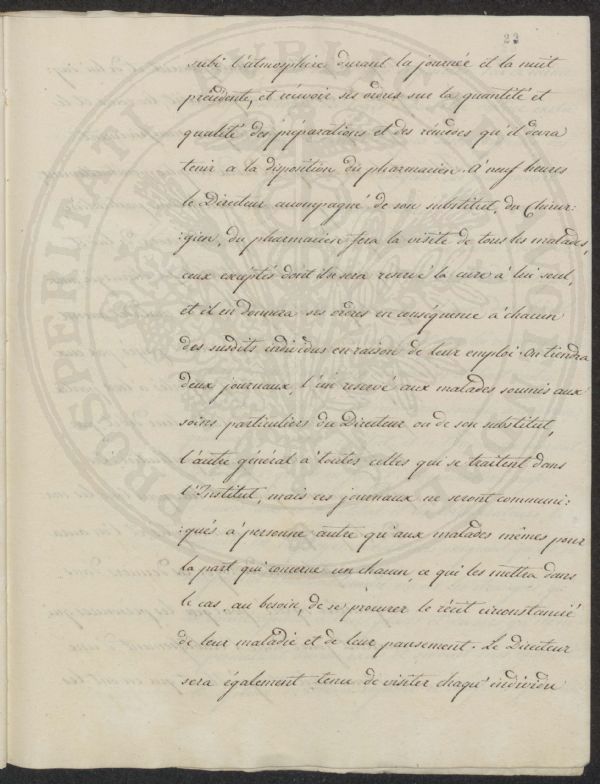 23
subi l'atmosphère durant la journée et la nuit
précédente, et recevoir ses ordres sur la quantité et
qualité des préparations et des remèdes qu'il devra
tenir a la disposition du pharmacien. A neuf heures
le Directeur accompagné de son substitut, du Chirur:
:gien, du pharmacien fera la visite de tous les malades,
ceux exceptés dont il se sera reservé la cure à lui seul,
et il en donnera ses ordres en conséquence à chacun
des susdits individus en raison de leur emploi. On tiendra
deux journaux, l'un reservé aux malades soumis aux
soins particuliers du Directeur ou de son substitut,
l'autre général à toutes celles qui se traitent dans
l'Institut, mais ces journaux ne seront communi:
:qués à personne autre qu'aux malades mêmes pour
la part qui concerne un chacun, ce qui les mettra dans
le cas, au besoin, de se procurer le récit circonstancié
de leur maladie et de leur pansement. Le Directeur
sera également tenu de visiter chaque individu
PROSPERITATI PUBLICAE